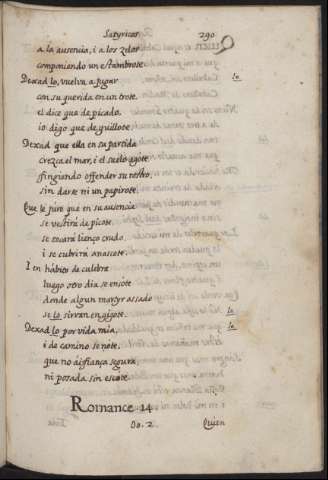 Satyricos 290
a la ausencia, i a los zelos
componiendo un estambrote.
Dexad lo, vuelva a jugar lo
con su querida en un trote.
el dice que de picado.
io digo que de quillote.
Dexad que ella en su partida
crezca el mar, i el suelo agote
fingiendo offender su rostro,
sin darse ni un papirote.
Que le jure que en su ausencia
se vestirá de picote.
se tocará lienço crudo.
i se cubrirá anascote.
I en hábito de culebra
luego otro dia se enjote
donde algun martyr assado
se lo sirvan en gigote. lo
Dexad lo por vida mia, lo
i de camino se note.
que no ai fiança segura,
ni posada sin escote.
Romance 14
Oo. 2. Quien